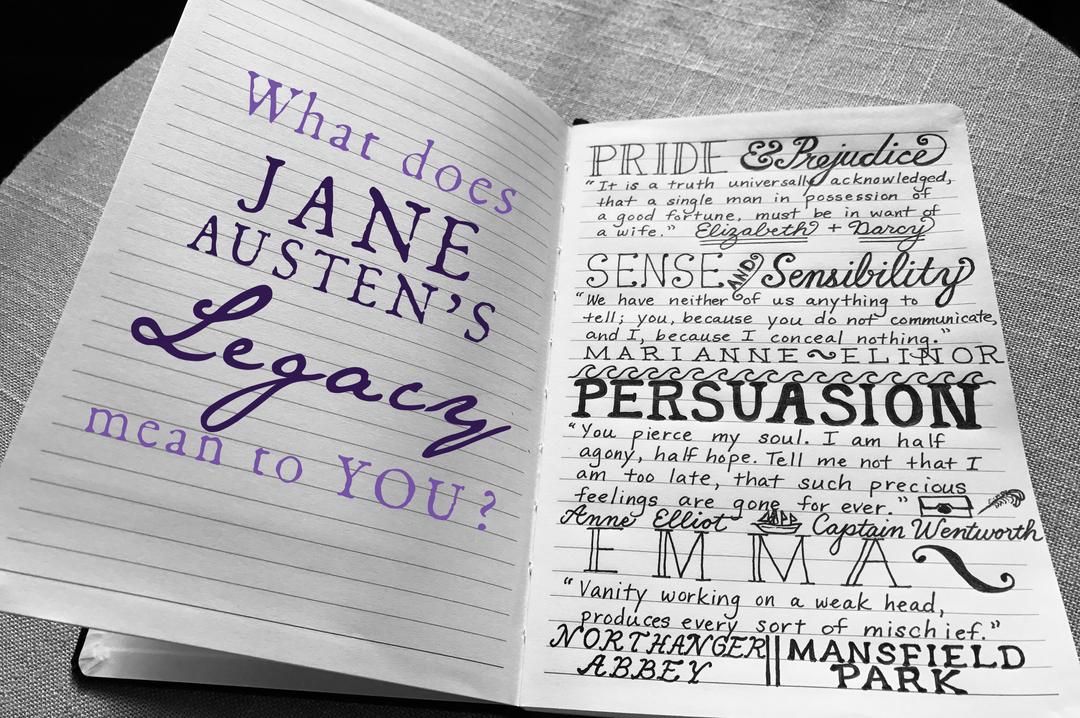 What does
JANE
AUSTEN'S
Legacy
mean to YOU?
PRIDE & Prejudice
"It is a truth universally acknowledged,
that a single man in possession of
a good fortune, must be in want of
a wife." Elizabeth + Darcy
SENSE AND Sensibility
"We have neither of us anything to
tell; you, because you do not communicate,
and I, because I conceal nothing."
MARIANNE ~ ELINOR
PERSUASION
"You pierce my soul. I am half
agony, half hope. Tell me not that I
am too late, that such precious
feelings are gone for ever."
Anne Elliot Captain Wentworth
EMMA
"Vanity working on a weak head,
produces every sort of mischief."
NORTHANGER ABBEY
MANSFIELD PARK